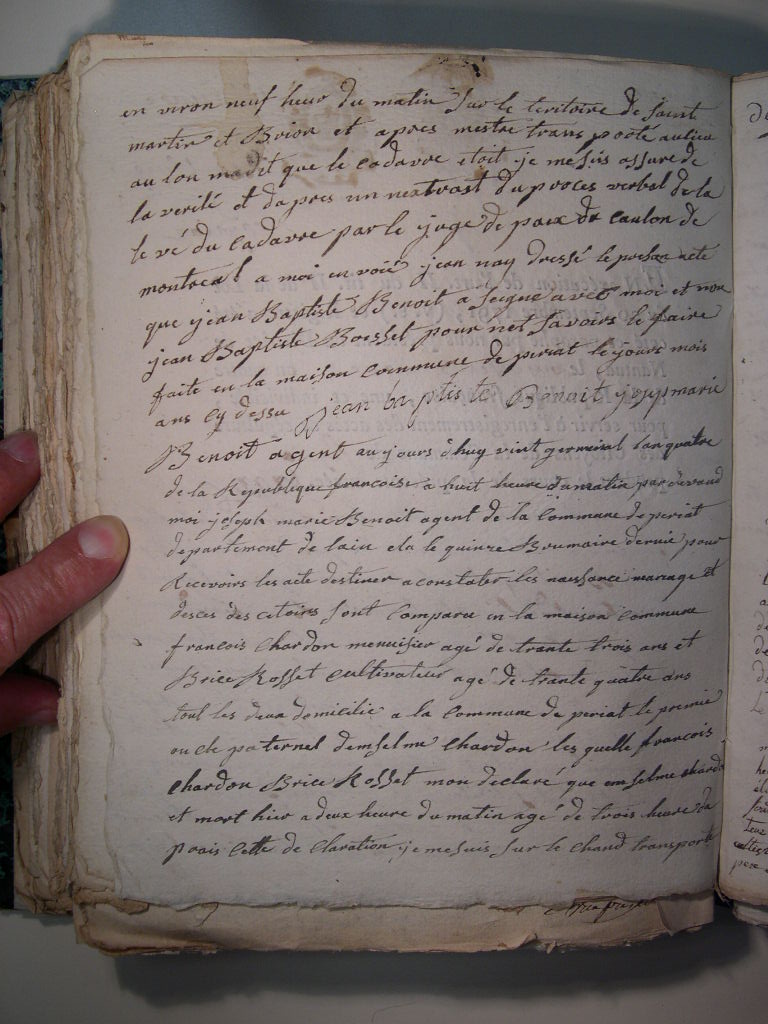 en viron neuf heur du matin sur le teritoire de saint
martin et Brion et apres mestre trans porté aulieu
au lon ma dit que le cadavre etoit je me suis assure de
la verité et dapres un nextrast du proces verbal de la
le vé du cadavre par le juge de paix de canlon de
montreal a moi en voié jean nay dressé le presan acte
que jean Baptiste Benoit a signe avec moi et non
jean Baptiste Boisset pour net savoirs le faire
faite en la maison commune de periat le jours mois
ans cy dessu jean baptiste Benoit joseph marie
Benoit agent aujours dhuy vint germinal lan quatre
de la Republique francoise a huit heure du matin par devand
moi joseph marie Benoit agent de la commune de periat
departement de lain ela le quinze Brumaire dernie pour
Recevoirs les acte destiner a constater les naissance mariage et
desces des citoirs sont comparu en la maison commune
francois chardon menuisier agé de trante trois ans et
Brice Rosset cultivateur agé de trante quatre ans
tout les deux domicilie a la commune de periat le premie
oncle paternel demselme chardon les quelle francois
chardon Brice Rosset mon declaré que emselme chardon
et mort hier a deux heure du matin agé de trois heure da
prais cette de claration je me suis sur le chand transporté